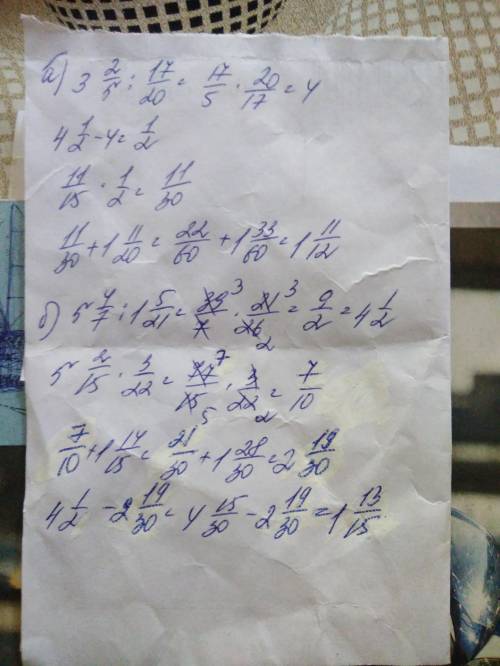 а) 3 2/5 : 17/20 = 17/5 · 20/17 = 4
4 1/2 - 4 = 1/2
11/15 · 1/2 = 11/30
11/30 + 1 11/20 = 22/60 + 1 33/60 = 1 11/12
б) 5 4/7 : 1 5/21 = 39/7 · 21/26 = 9/2 = 4 1/2
5 2/15 · 3/22 = 77/15 · 3/22 = 7/10
7/10 + 1 14/15 = 21/30 + 1 28/30 = 2 19/30
4 1/2 - 2 19/30 = 4 15/30 - 2 19/30 = 1 13/15